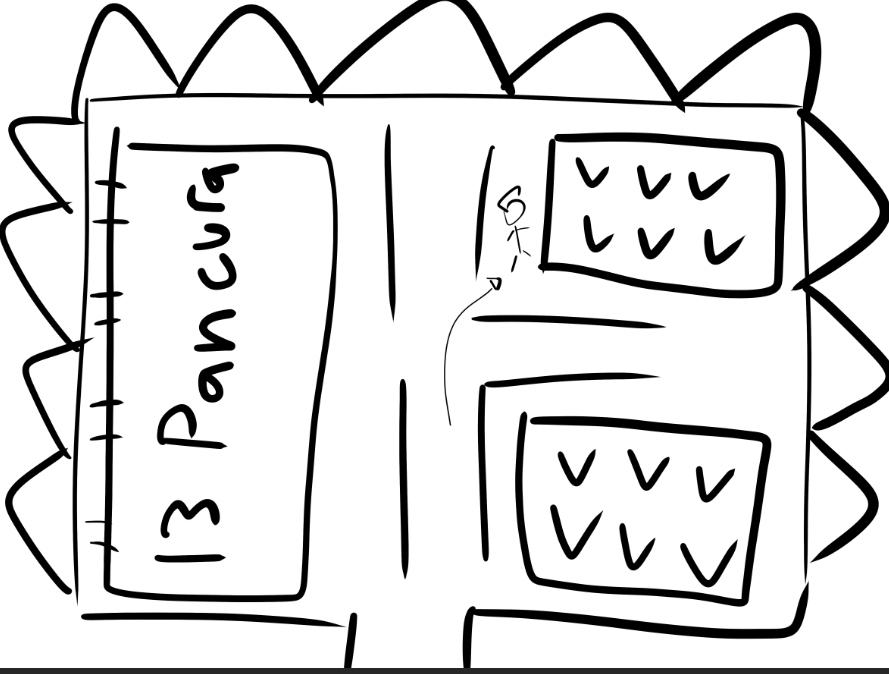 13 Pancura